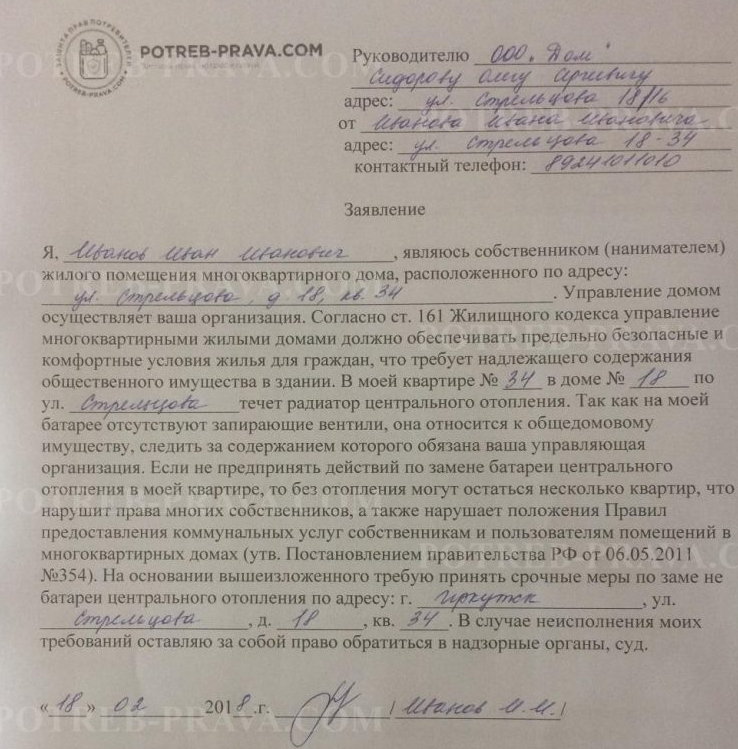 POTREB-PRAVA.COM
Руководителю ООО "Дом"
Сидорову Олегу
адрес: ул. Стрельцова 18/16
от Иванова Ивана Ивановича
адрес: ул. Стрельцова 18-34
контактный телефон: 89241011010
Заявление
Я, Иванов Иван Иванович, являюсь собственником (нанимателем)
жилого помещения многоквартирного дома, расположенного по адресу:
ул. Стрельцова, д 18, кв. 34. Управление домом
осуществляет ваша организация. Согласно ст. 161 Жилищного кодекса управление
многоквартирными жилыми домами должно обеспечивать предельно безопасные и
комфортные условия жилья для граждан, что требует надлежащего содержания
общественного имущества в здании. В моей квартире № 34 в доме № 18 по
ул. Стрельцова течет радиатор центрального отопления. Так как на моей
батарее отсутствуют запирающие вентили, она относится к общедомовому
имуществу, следить за содержанием которого обязана ваша управляющая
организация. Если не предпринять действий по замене батареи центрального
отопления в моей квартире, то без отопления могут остаться несколько квартир, что
нарушит права многих собственников, а также нарушает положения Правил
предоставления коммунальных услуг собственникам и пользователям помещений в
многоквартирных домах (утв. Постановлением правительства РФ от 06.05.2011
№354). На основании вышеизложенного требую принять срочные меры по заме не
батареи центрального отопления по адресу: г. Иркутск, ул.
Стрельцова, д. 18, кв. 34. В случае неисполнения моих
требований оставляю за собой право обратиться в надзорные органы, суд.
« 18 » 02 2018 .г. / Иванов И.И. /